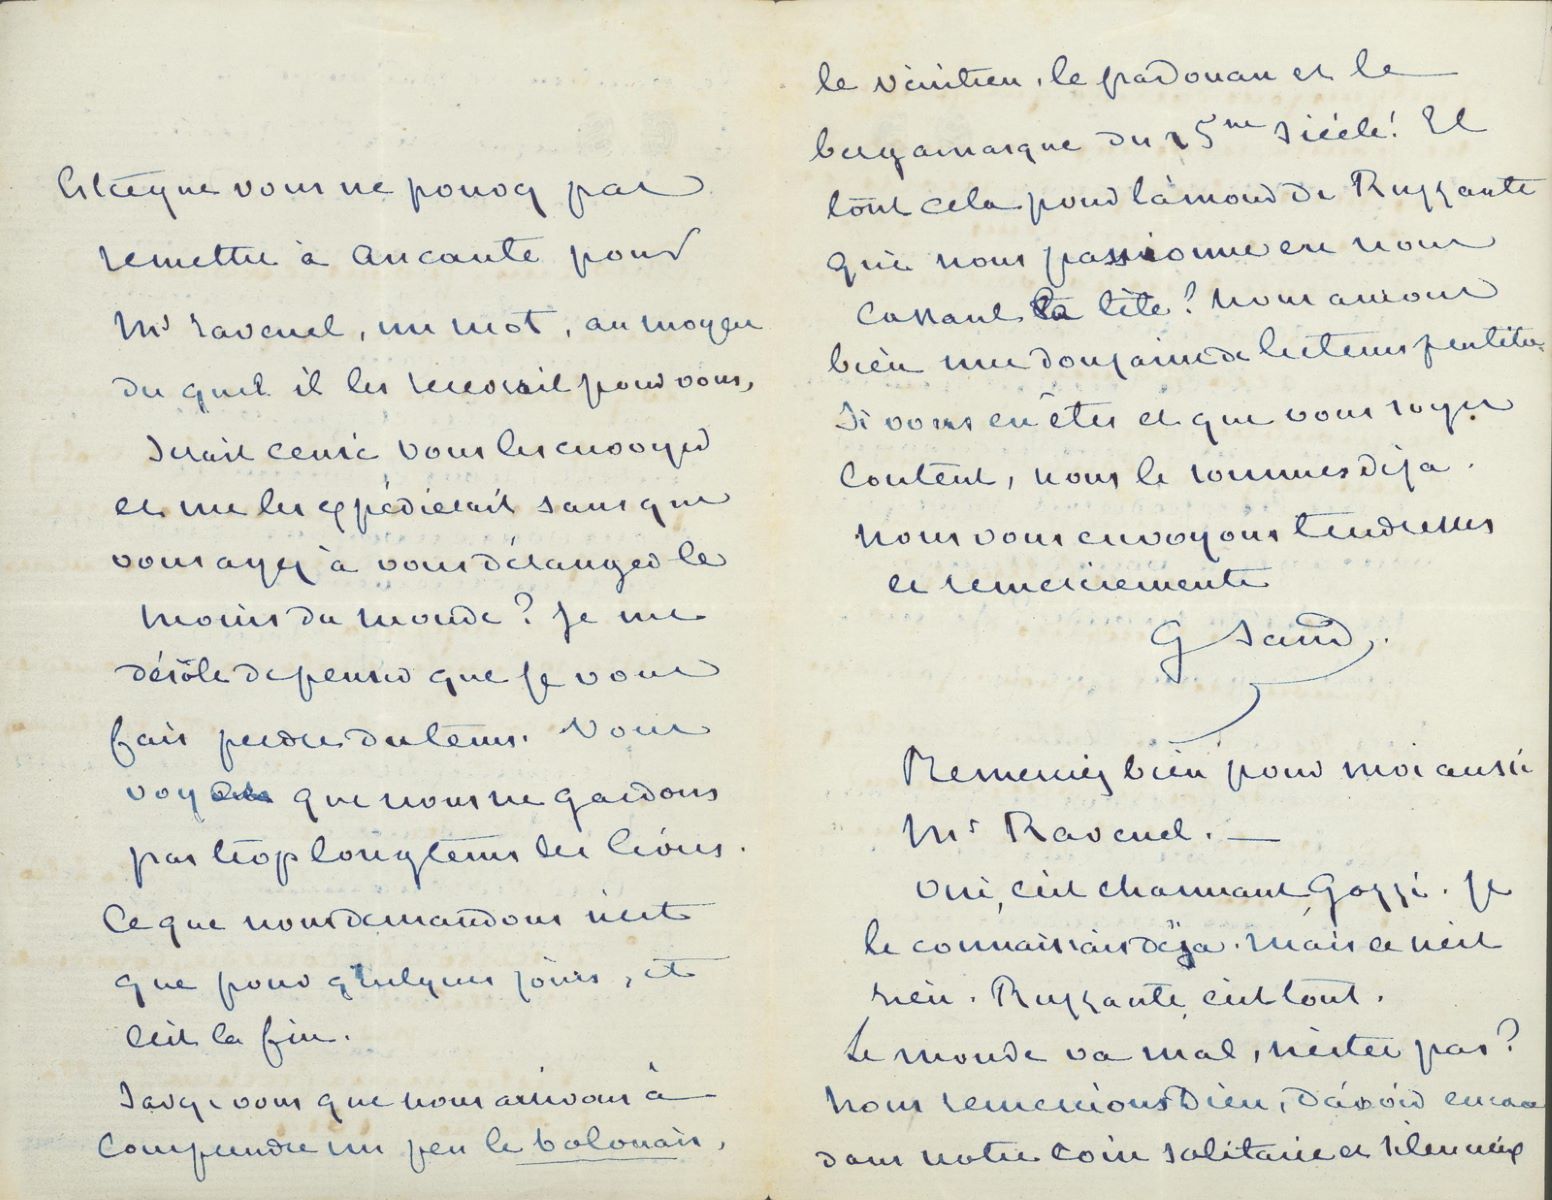 Est-ce que vous ne pouvez pas
remettre à Aucante pour
Mr Ravenel, un mot, au moyen
du quel il les recevrait pour vous,
serait censé vous les envoyer
et me les expédierait sans que
vous ayez à vous déranger le
moins du monde? Je me
désole de penser que je vous
fais perdre du tems. Vous
voyez que nous ne gardons
pas trop longtems les livres.
Ce que nous demandons n'est
que pour quelques jours, et
c'est la fin.
Savez-vous que nous arrivons à
comprendre un peu le bolonais,
le vénitien, le padouan et le
bergamasque du 15me siècle! Et
tout cela pour l'amour de Ruzzante
qui nous passionne en nous
cassant la tête? Nous aurons
bien une douzaine de lecteurs
Si vous en êtes et que vous soyez
content, nous le sommes déja.
Nous vous envoyons tendresses
et remerciements
G Sand.
Remerciez bien pour moi aussi
Mr Ravenel. —
Oui, c'est charmant, Gozzi. Je
le connaissais déja. Mais ce n'est
rien. Ruzzante, c'est tout.
Le monde va mal, n'est-ce pas?
Nous remercions Dieu, d'avoir encore
dans notre coin solitaire et silencieux